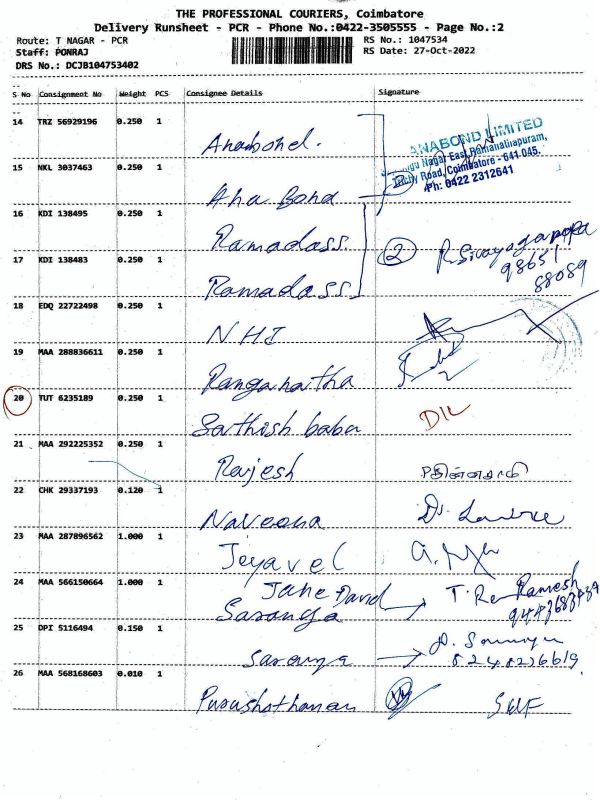 THE PROFESSIONAL COURIERS, Coimbatore
Delivery Runsheet - PCR - Phone No.:0422-3505555 - Page No.:2
Route: T NAGAR - PCR RS No.: 1047534
Staff: PONRAJ RS Date: 27-Oct-2022
DRS No.: DCJB104753402
S No Consignment No Weight PCS Consignee Details Signature
14 TRZ 56929196 0.250 1 Anabond.
ANABOND LIMITED
Nagar East, Ramanathapuram,
Trichy Road, Coimbatore - 641 045.
Ph: 0422 2312641
15 NKL 3037463 0.250 1 Ana Bond
16 KDI 138495 0.250 1 Ramadass.
17 KDI 138483 0.250 1 Ramadass
2 R. Sivayoga
98651
88089
18 EDQ 22722498 0.250 1 NHI
19 MAA 288836611 0.250 1 Ranganatha
20 TUT 6235189 0.250 1 Sathish baba D/L
21 MAA 292225352 0.250 1 Rajesh
22 CHK 29337193 0.120 1 Naveena
23 MAA 287896562 1.000 1 Jeyavel
24 MAA 566150664 1.000 1 Jane David
Saranga T. Ramesh
25 DPI 5116494 0.150 1 Saranya
8248226619
26 MAA 568168603 0.010 1 Purushothaman Self